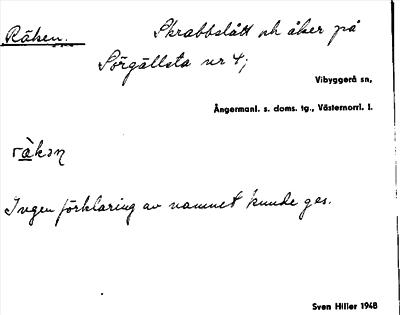 Räken. Skrabbslått och åker på
Sörgällsta nr 4;
Vibyggerå sn,
Ångermanl. s. doms. tg., Västernorrl. l.
rὰkəɲ
Ingen förklaring av namnet kunde ges.
Sven Hiller 1948